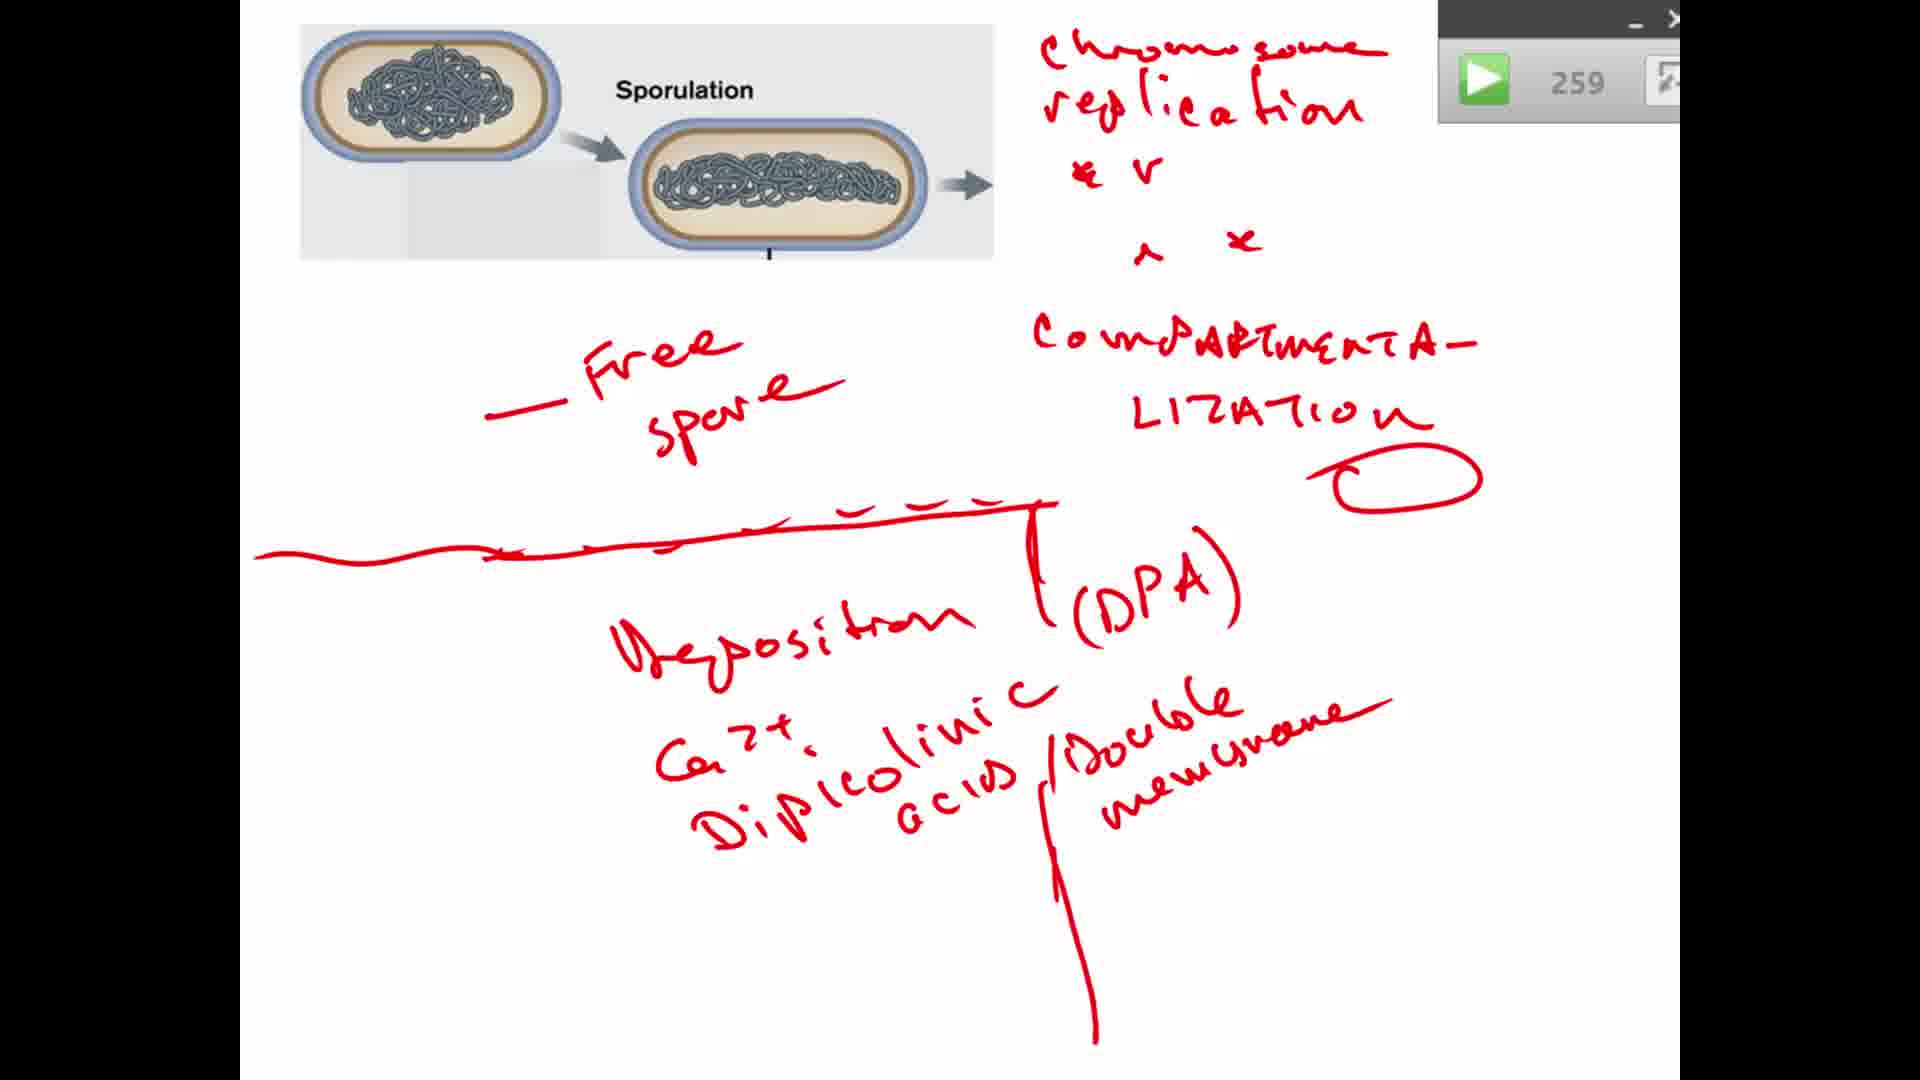 Sporulation
chromosome
replication
* v
^ *
COMPARTMENTA-
LIZATION
— Free
spore
259
Deposition
(DPA)
Ca2+.
Dipicolinic
acid
Double
membrane